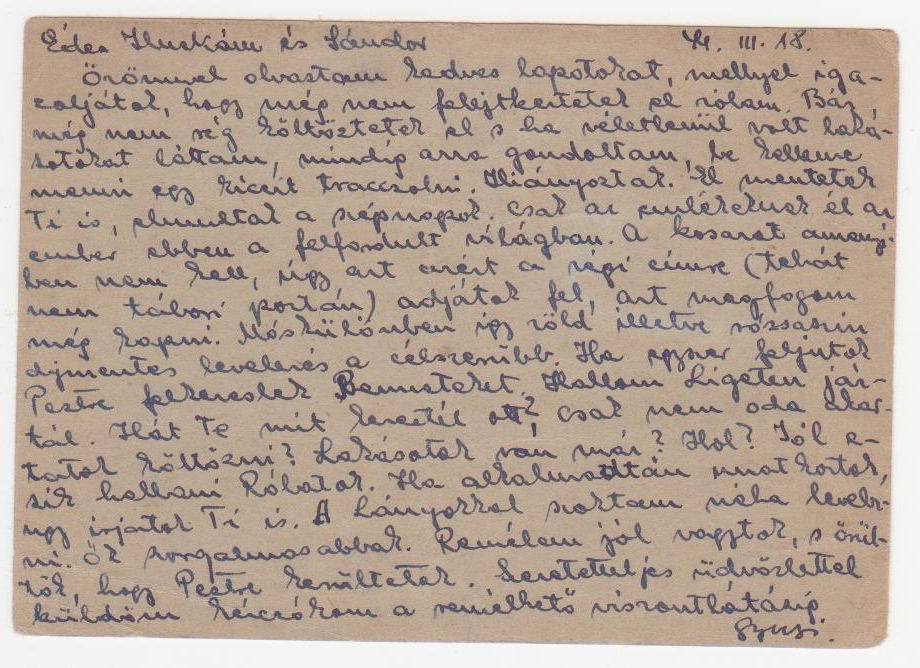 Édes Iluskám és Sándor 44. III. 18.
Örömmel olvastam kedves lapotokat, mellyel iga-
zoljátok, hogy még nem felejtkeztetek el rólam. Bár
még nem rég költöztetek el s ha véletlenül volt laká-
sotokat láttam, mindíg arra gondoltam, be kellene
menni egy kicsit traccsolni. Hiányoztok. El mentetek
Ti is, elmultak a szép napok. Csak az emlékeknek él az
ember ebben a felfordult világban. A kosarat amennyi-
ben nem kell, úgy azt azért a régi címre (tehát
nem tábori postán) adjátok fel, azt megfogom
még kapni. Máskülönben így zöld illetve rózsaszín
díjmentes levelezés a célszerübb. Ha egyszer feljutok
Pestre felkereslek Benneteket. Hallom Ligeten jár-
tál. Hát Te mit kerestél ott? Csak nem oda akar-
tatok költözni? Lakásotok van már? Hol? Jól e-
sik hallani Rólatok. Ha alkalmadtán unatkoztok,
ugy irjatok Ti is. A Lányokkal szoktam néha levelez-
ni. Ők szorgalmasabbak. Remélem jól vagytok, s örül-
tök, hogy Pestre kerültetek. Szeretetteljes üdvözlettel
küldöm kézcsókom a remélhető viszontlátásig